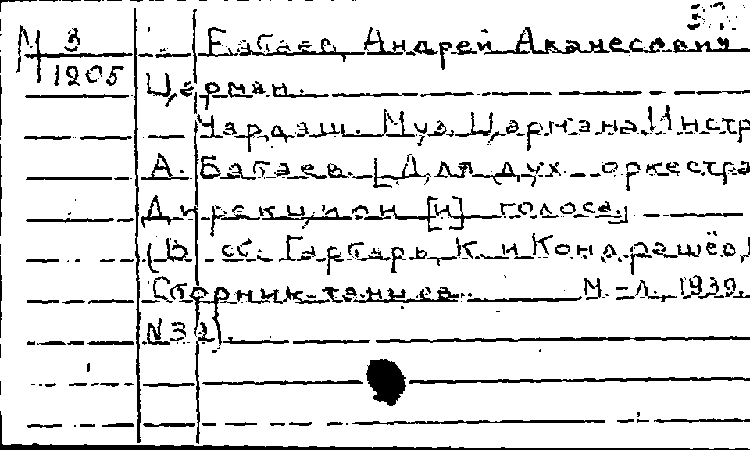 М 3 Бабаев, Андрей Аванесович
1205 Царман.
Чардаш. Муз. Цармана. Инстр
А. Бабаев. [Для дух. оркестра
Дирекцион [и] голоса.]
(В сб. Гарбарь, К. и Кондрашёв,
Сборник танцев. М.-Л., 1939.
№ 32).